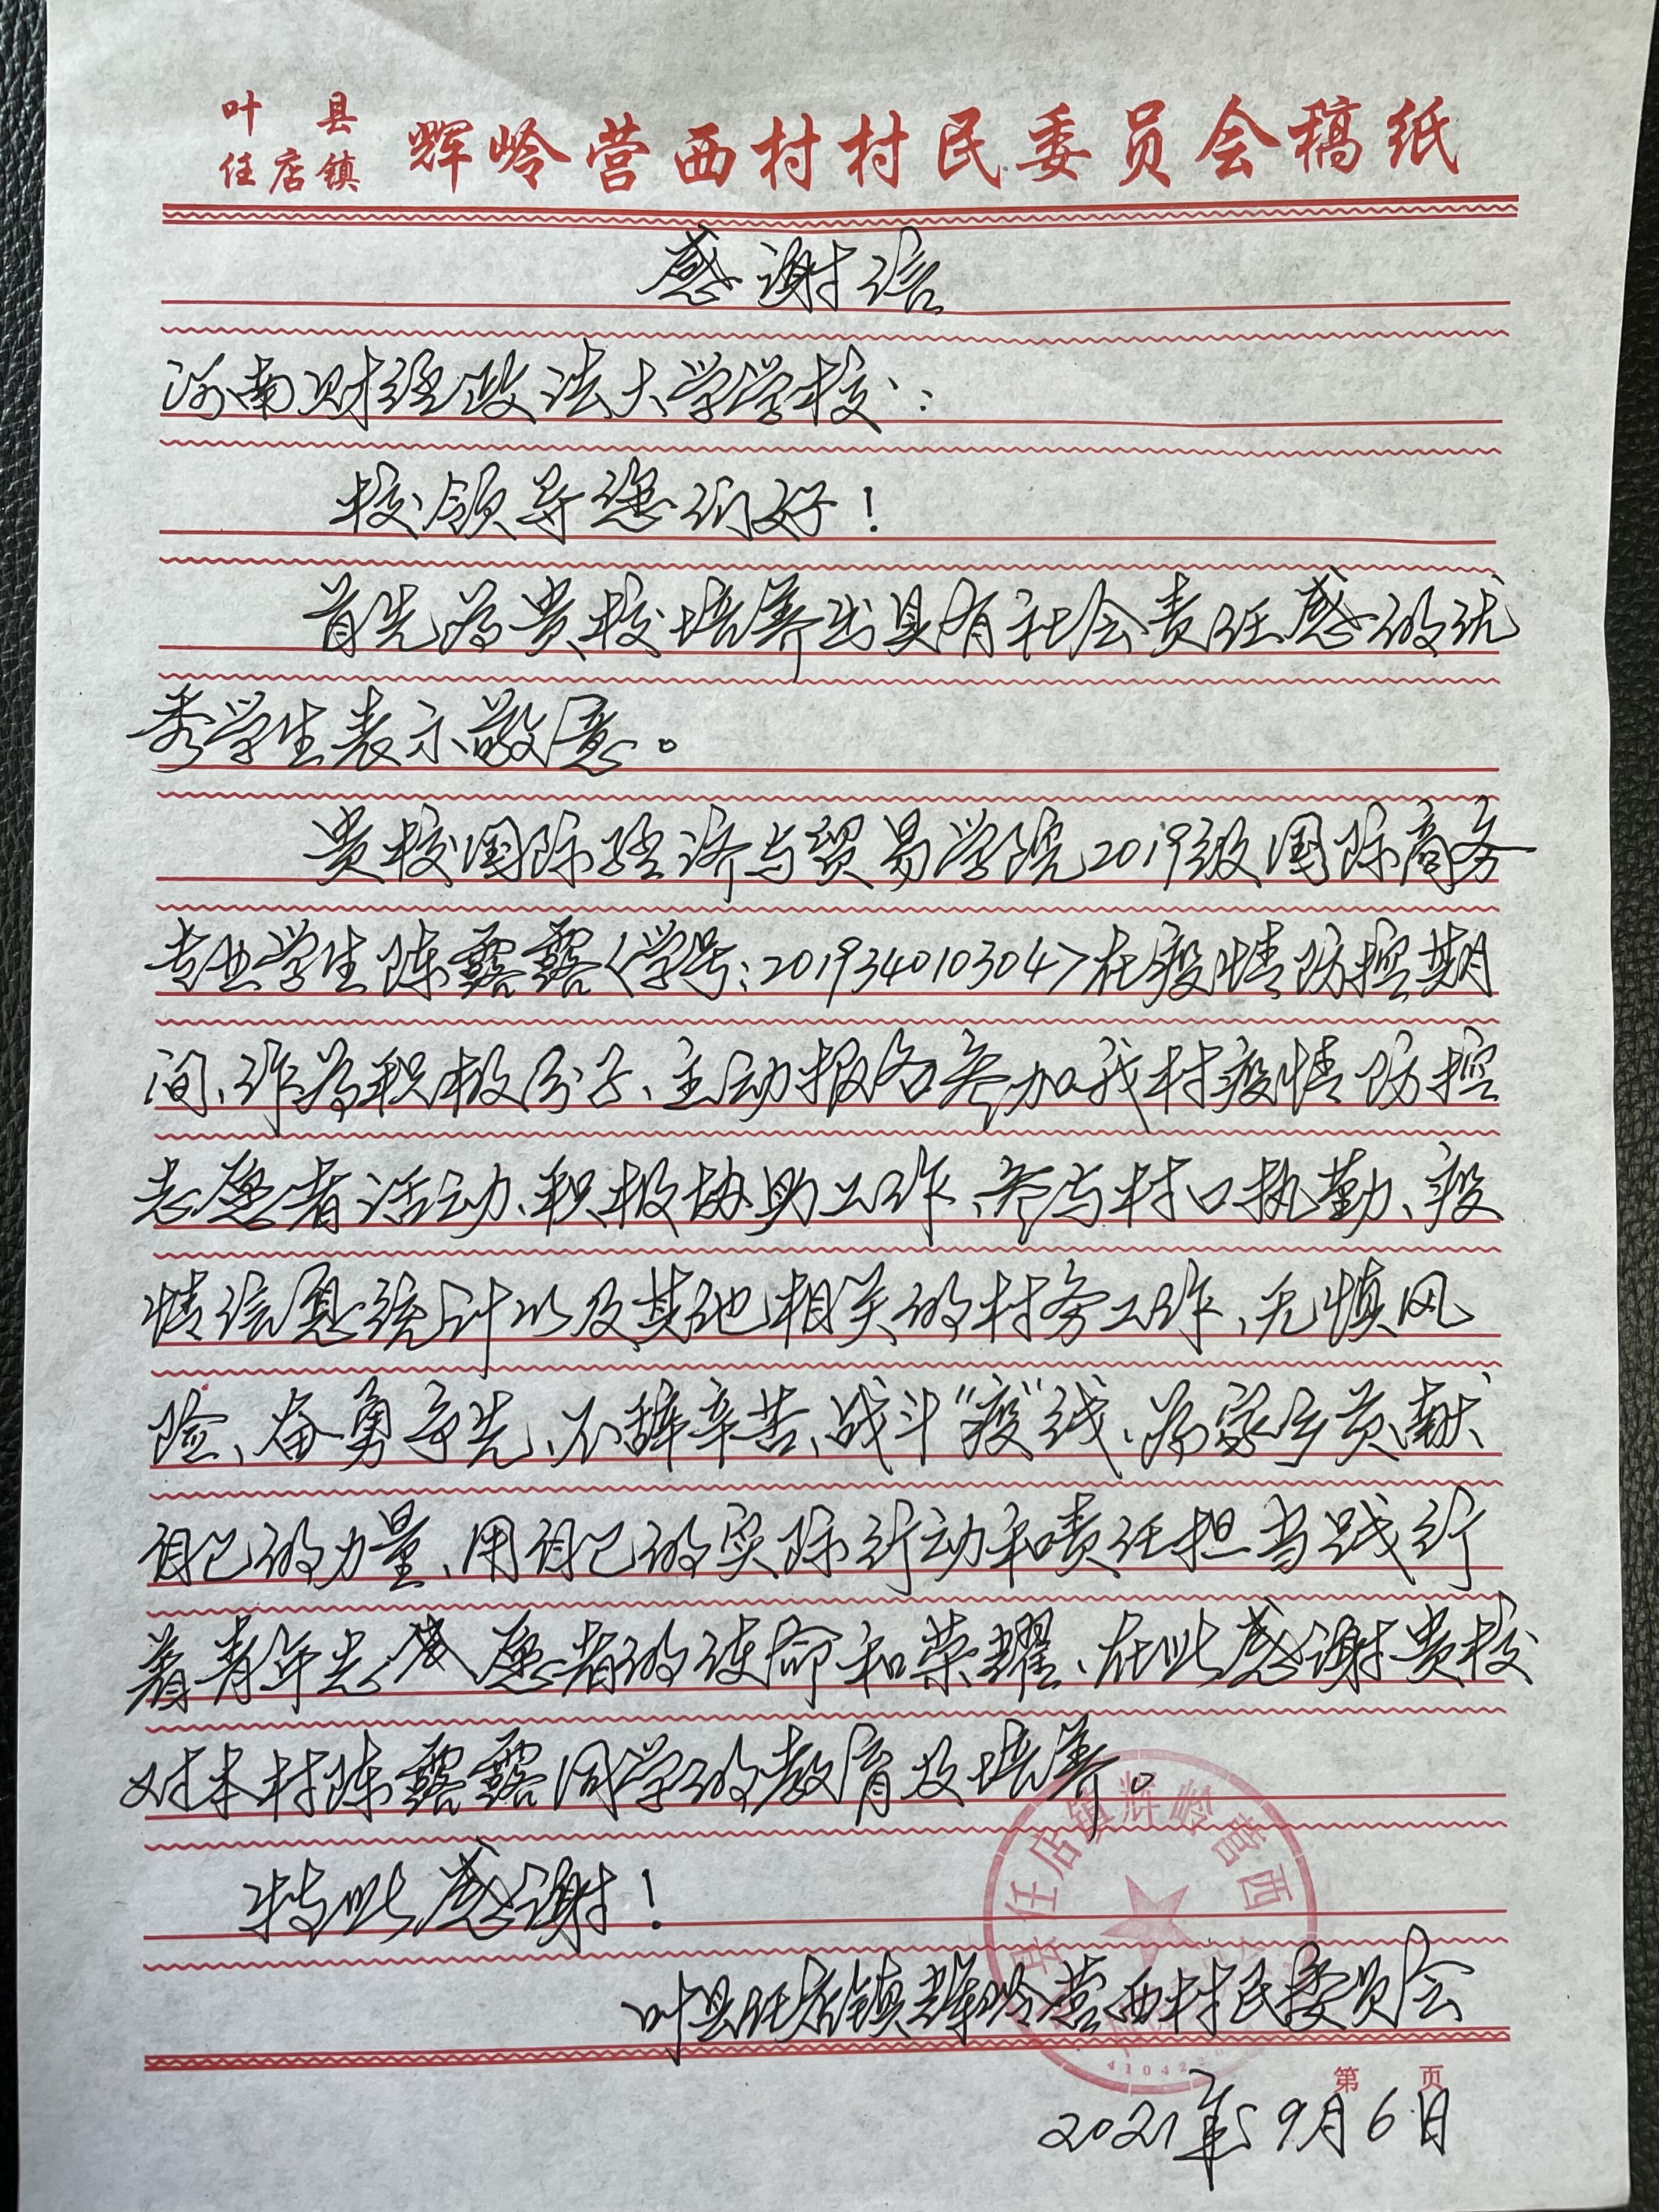 叶县
任店镇 辉岭营西村村民委员会稿纸
感谢信
河南财经政法大学学校:
校领导您们好!
首先为贵校培养出具有社会责任感的优
秀学生表示敬意。
贵校国际经济与贸易学院2019级国际商务
专业学生陈露露<学号:201934010304>在疫情防控期
间、作为积极分子、主动报名参加我村疫情防控
志愿者活动、积极协助工作、参与村口执勤、疫
情信息统计以及其他相关的村务工作、无惧风
险、奋勇争先、不辞辛苦、战斗“疫”线、为家乡贡献
自己的力量、用自己的实际行动和责任担当践行
着青年志愿者的使命和荣耀、在此感谢贵校
对本村陈露露同学的教育及培养。
特此感谢!
叶县任店镇辉岭营西村民委员会
第 页
2021年9月6日
县任店镇辉岭营西
410422